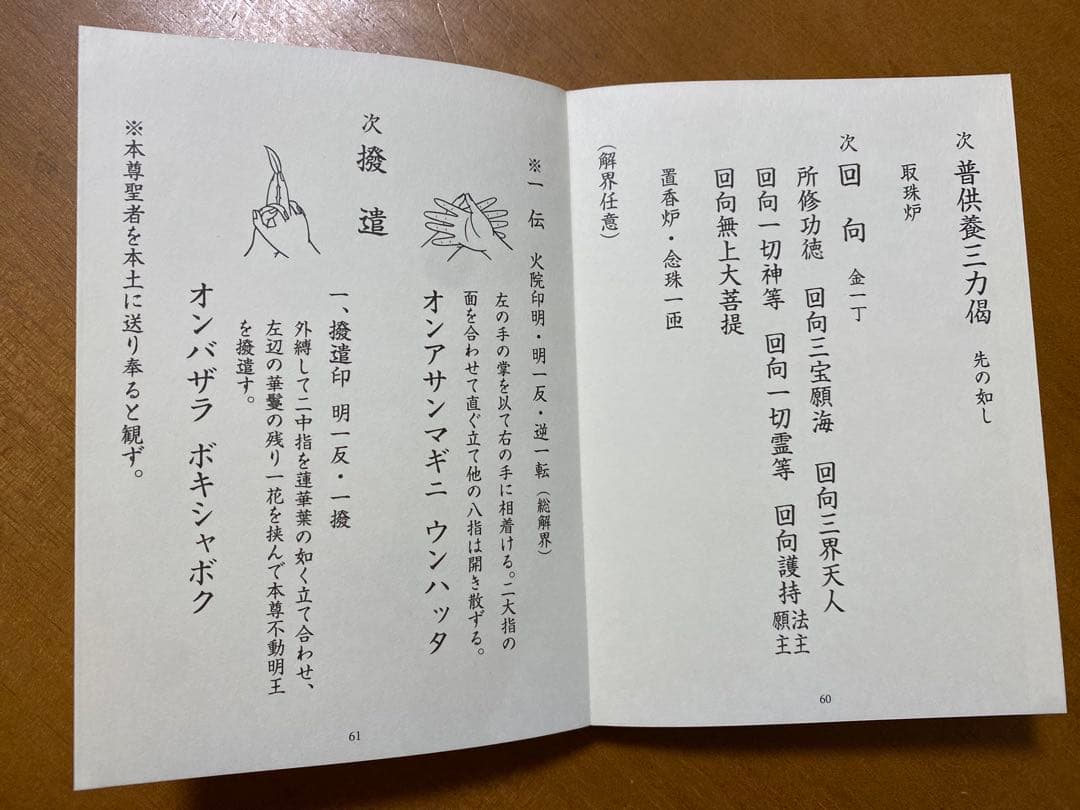 次 普供養三力偈 先の如し
取珠炉
次 回向 金一丁
所修功徳 回向三宝願海 回向三界天人
回向一切神等 回向一切霊等 回向護持法主願主
回向無上大菩提
置香炉・念珠一匝
(解界任意)
60
※一伝 火院印明・明一反・逆一転(総解界)
左の手の掌を以て右の手に相着ける。二大指の
面を合わせて直ぐ立て他の八指は開き散ずる。
オンアサンマギニ ウンハッタ
次 撥遣
一、撥遣印 明一反・一撥
外縛して二中指を蓮華葉の如く立て合わせ、
左辺の華鬘の残り一花を挟んで本尊不動明王
を撥遣す。
オンバザラ ボキシャボク
※本尊聖者を本土に送り奉ると観ず。
61